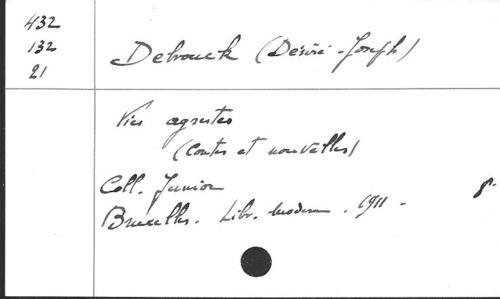 432
132
21
Debrouck (Désiré-Joseph)
Vies agrestes
(Contes et nouvelles)
Coll. Junior
8°
Bruxelles. Libr. moderne. 1911.